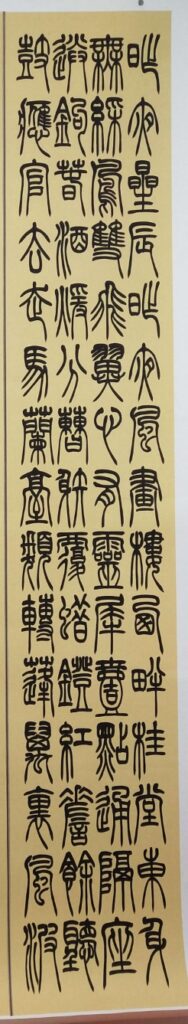 昨夜星辰昨夜風畫樓西畔桂堂東身
無綵鳳雙飛翼心有靈犀壹點通隔座
送鉤春酒暖分曹射覆蜡鐙紅嗟餘聽
鼓應官去走馬蘭臺類轉蓬萬裏風波